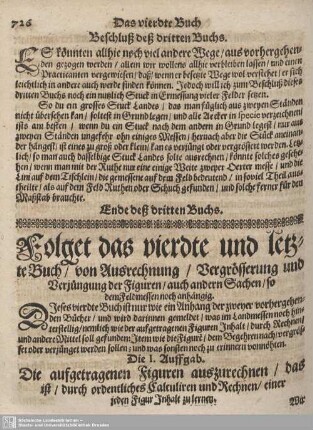 726 Das vierdte Buch
Beschluß deß dritten Buchs.
ES könnten allhie noch viel andere Wege / aus vorhergehen-
den gezogen werden / allein wir wollens allhie verbleiben lassen / und einen
Practicanten vergewissen / daß / wenn er besagte Wege wol verstehet / er sich
leichtlich in andere auch werde finden können. Jedoch will ich zum Beschluß dieses
dritten Buchs noch ein nutzlich Stuck im Grund legen setzen.
So du ein grosses Stuck Landes / das man füglich aus zweyen Ständen
nicht übersehen kan / soltest in Grund legen / und alle Aecker in specie verzeichnen /
ists am besten / wenn du ein Stuck nach dem andern in Grund legest / nur aus
zweyen Ständen ungefehr ohn einiges Messen / hernach aber die Stück aneinan-
der hängest / ist eines zu groß oder klein / kan es verjüngt oder vergrössert werden. Letz-
lich / so man auch dasselbige Stuck Landes solte ausrechnen / könnte solches gesche-
hen / wenn man mit der Ruthe nur eine einige Weite zweyer Oerter messe / und die
Lini auf dem Tischlein / die gemessene auf dem Feld bedeutend / in soviel Theil aus-
theilte / als auf dem Feld Ruthen oder Schuch gefunden / und solche ferner für den
Maßstab brauchte.
Ende deß dritten Buchs.
Folget das vierdte und letz-
te Buch / von Ausrechnung / Vergrösserung und
Verjüngung der Figuren / auch andern Sachen / so
dem Feldmessen noch anhängig.
DIeses vierdte Buch ist nur wie ein Anhang der zweyer vorhergehen-
den Bücher / und wird darinnen gemeldet / was im Landmessen noch hin-
terstellig / nemlich wie der aufgetragenen Figuren Inhalt / durch Rechnung
und andere Mittel soll gefunden: Item wie die Figur / dem Begehren nach / vergrös-
sert oder verjünget werden sollen; und was sonsten noch zu erinnern vonnöthen.
Die 1. Auffgab.
Die aufgetragenen Figuren auszurechnen / das
ist / durch ordentliches Calculiren und Rechnen / einer
jeden Figur Inhalt zu lernen.